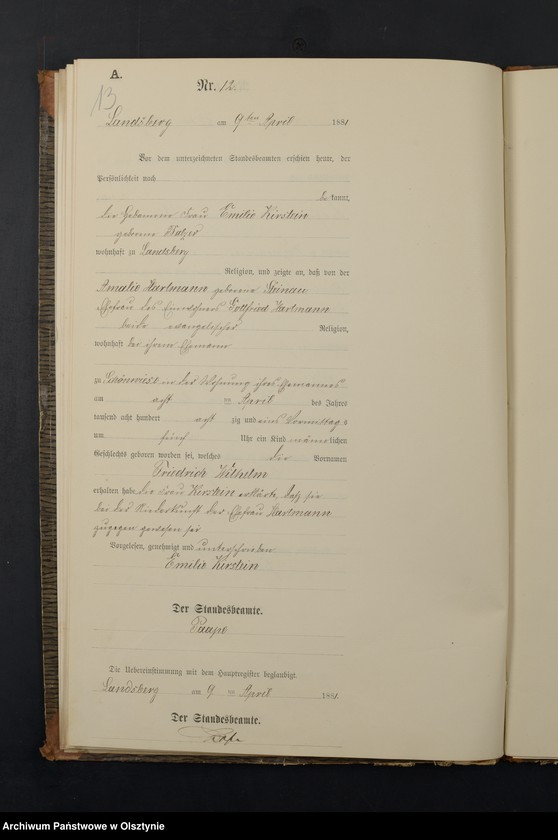 A.
13
Nr. 12
Landsberg am 9ten April 1881
Vor dem unterzeichneten Standesbeamten erschien heute, der
Persönlichkeit nach
be kannt,
die Hebamme Frau Emilie Kirstein
geborene
wohnhaft zu Landsberg
Religion, und zeigte an, daß von der
Amalie Hartmann geborene Steinau
Ehefrau des Einwohners Gottfried Hartmann
beide evangelischer Religion,
wohnhaft bei ihrem Ehemann
zu Schönwiese in der Wohnung ihres Ehemannes
am acht ten April des Jahres
tausend acht hundert acht zig und eins Vormittags
um fünf Uhr ein Kind männlichen
Geschlechts geboren worden sei, welches die Vornamen
Friedrich Wilhelm
erhalten habe. Die Frau Kirstein erklärte, daß sie
bei der Niederkunft der Ehefrau Hartmann
zugegen gewesen sei
Vorgelesen, genehmigt und unterschrieben
Emilie Kirstein
Der Standesbeamte.
Paape
Die Uebereinstimmung mit dem Hauptregister beglaubigt
Landsberg am 9 ten April 1881
Der Standesbeamte.
Archiwum Państwowe w Olsztynie